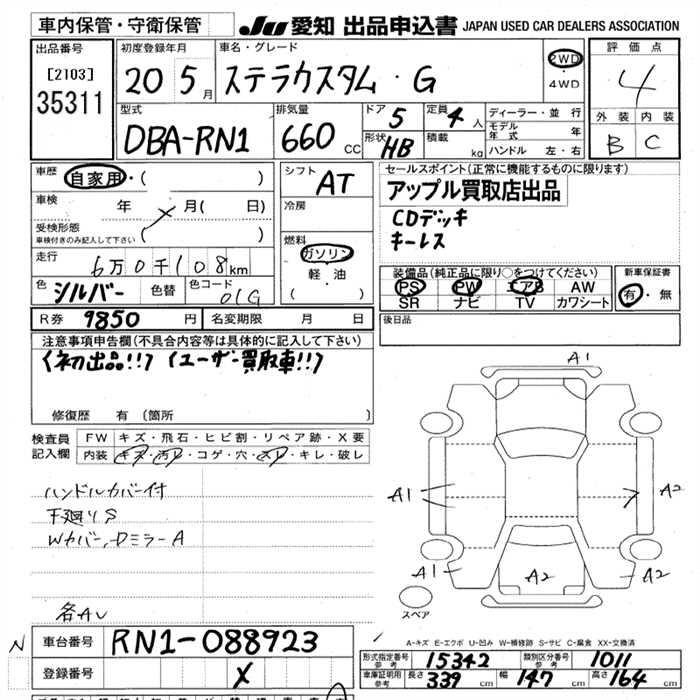 車内保管・守衛保管
JU 愛知 出品申込書 JAPAN USED CAR DEALERS ASSOCIATION
出品番号 初度登録年月 車名・グレード 評価点
[2103] 20 5月 ステラカスタム・G 2WD・4WD 4
35311
型式 排気量 ドア 5 定員 4人 ディーラー・並行 外装 内装
DBA-RN1 660CC 形状 HB 積載 kg モデル年式 年 B C
ハンドル 左・右
車歴 自家用・( ) シフト AT セールスポイント(正常に機能するものに限ります)
車検 年 × 月( 日) 冷房 アップル買取店出品
受検形態 CDデッキ
車検付きのみ記入して下さい 燃料 キーレス
走行 6万0千108km ガソリン 装備品(純正品に限り○をつけてください) 新車保証書
色 シルバー 色替 色コード 01G 軽・油 PS PW エアB AW 有・無
( ・ ) SR ナビ TV カワシート
R券 9850円 名変期限 月 日 後日品
注意事項申告欄(不具合内容等は具体的に記入して下さい)
〈初出品!!〉〈ユーザー買取車!!〉
修復歴 有(箇所 )
検査員 FW キズ・飛石・ヒビ割・リペア跡・X要
記入欄 内装 キズ・汚レ・コゲ・穴・スレ・キレ・破レ
ハンドルカバー付
下廻りS
Wカバー、DミラーA
各AU
A1
A1 A2
A1 A2 A2
スペア
A-キズ E-エクボ U-凹み W-補修跡 S-サビ C-腐食 XX-交換済
N 車台番号 RN1-088923
登録番号 ×
形式指定番号 参考 15342 類別区分番号 参考 1011
車庫証明用 参考 長さ 339cm 幅 147cm 高さ 164cm